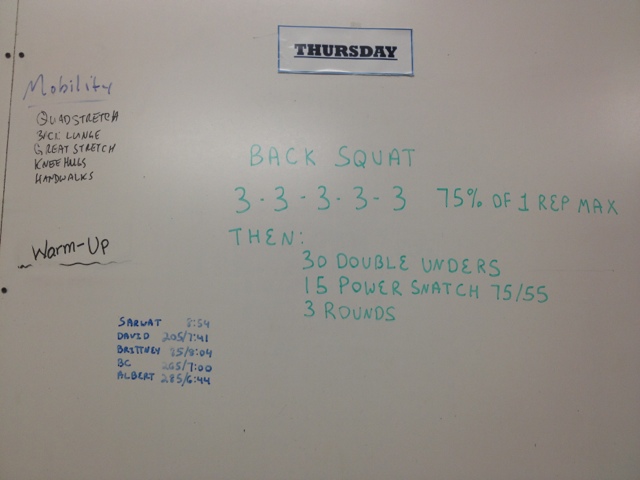 THURSDAY
Mobility
QUADSTRETCH
BACK LUNGE
GREAT STRETCH
KNEE HUGS
HANDWALKS
Warm-Up
BACK SQUAT
3-3-3-3-3 75% OF 1 REP MAX
THEN:
30 DOUBLE UNDERS
15 POWER SNATCH 75/55
3 ROUNDS
SARWAT 8:54
DAVID 205/7:41
BRITTNEY 85/8:04
BC 265/7:00
ALBERT 285/6:44